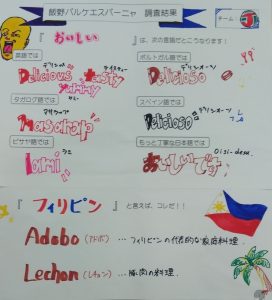 飯野バルケエスパーニャ 調査結果
チーム：
『 おいしい 』は、次の言語だとこうなります！
英語では
デリシャス テイスティー
Delicious tasty
yummy
ヤミー
ポルトガル語では
デリシオーゾ
Delicioso
タガログ語では
マサラップ
Masarap
スペイン語では
デリシオーソ
Delicioso
ビサヤ語では
ラミ
Lami
もっと丁寧な日本語で
Oisi-desu
おいしいです
『 フィリピン 』と言えば、コレだ！！
Adobo（アドボ）…フィリピンの代表的な家庭料理.
Lechon（レチョン）…豚肉の料理.